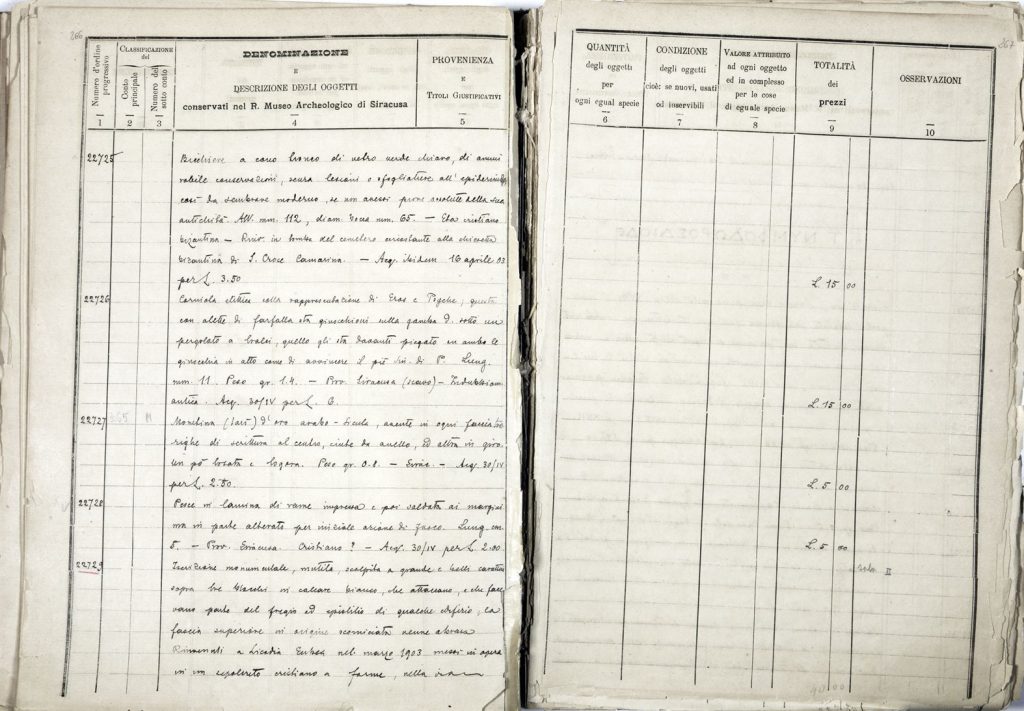 266
Numero d'ordine progressivo
CLASSIFICAZIONE del
Conto principale
Numero del sotto conto
DENOMINAZIONE
E
DESCRIZIONE DEGLI OGGETTI
conservati nel R. Museo Archeologico di Siracusa
PROVENIENZA
E
TITOLI GIUSTIFICATIVI
1 2 3 4 5
22725 Bicchiere a cono tronco di vetro verde chiaro, di ammi
rabile conservazioni, senza lesioni o sfogliature all'epidermide
così da sembrare moderno, se non avessi prove assolute della sua
antichità. Alt. mm. 112, diam. bocca mm. 65. — Età cristiano
bizantina — Rinv. in tombe del cemetero circostante alla chiesetta
bizantina di S. Croce Camarina. — Acq. ibidem 16 aprile 03
per L. 3.50
22726 Corniola elittica colla rappresentazione di Eros e Psyche; questa
con alette di farfalla sta ginocchioni sulla gamba d. sotto un
pergolato a tralci, quello gli sta davanti piegato in ambo le
ginocchia in atto come di avvincere il piè sin. di P. Lung.
mm. 11. Peso gr. 1.4. — Prov. Siracusa (scavo) —
antica. Acq. 30/IV per L. 6.
22727 265 M Monetina (tarì) d'oro arabo-sicula, avente in ogni faccia tre
righe di scrittura al centro, cinte da anello, ed altra in giro.
Un pò tosata e logora. Peso gr. 0.8. — Sirac. — Acq. 30/IV
per L. 2.50.
22728 Pesce in lamina di rame impressa e poi saldata ai margini
ma in parte alterato per iniziale azione di fuoco. Lung. cm.
5. — Prov. Siracusa. Cristiano? — Acq. 30/IV per L. 2.00.
22729 Iscrizione monumentale, mutila, scolpita a grandi e belli caratteri
sopra tre blocchi in calcare bianco, che attaccano, e che face
vano parte del fregio ed epistilio di qualche edifizio; la
fascia superiore in origine scorniciata venne abrasa
Rinvenuti a Licodia Eubea nel marzo 1903 messi in opera
in un sepolcreto cristiano a forme, nella
267
QUANTITÀ
degli oggetti
per
ogni egual specie
CONDIZIONE
degli oggetti
cioè: se nuovi, usati
od inservibili
VALORE ATTRIBUITO
ad ogni oggetto
ed in complesso
per le cose
di eguale specie
TOTALITÀ
dei
prezzi
OSSERVAZIONI
6 7 8 9 10
L. 15 00
L. 15 00
L. 5 00
L. 5 00
II